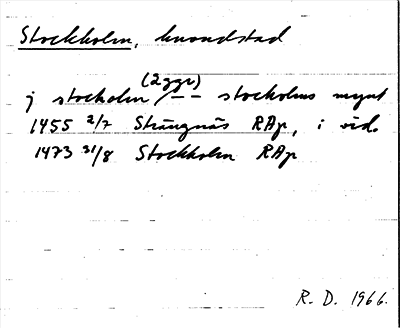 Stockholm, huvudstad
(2 ggr)
j stocholm / – – stocholms mynt
1455 2/7 Strängnäs RAp, i vid.
1473 31/8 Stockholm RAp
R. D. 1966.